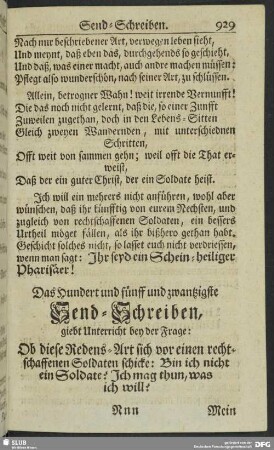 Send-Schreiben. 929
Nach nur beschriebener Art, verwegen leben sieht,
Und meynt, daß eben das, durchgehends so geschieht,
Und daß, was einer macht, auch andre machen müssen:
Pflegt also wunderschön, nach seiner Art, zu schlüssen.
Allein, betrogner Wahn! weit irrende Vernunfft!
Die das noch nicht gelernt, daß die, so einer Zunfft
Zuweilen zugethan, doch in den Lebens-Sitten
Gleich zweyen Wandernden, mit unterschiednen
Schritten,
Offt weit von sammen gehn; weil offt die That er-
weist,
Daß der ein guter Christ, der ein Soldate heist.
Ich will ein mehrers nicht anführen, wohl aber
wünschen, daß ihr künfftig von eurem Nechsten, und
zugleich von rechtschaffenen Soldaten, ein bessers
Urtheil möget fällen, als ihr bißhero gethan habt.
Geschicht solches nicht, so lasset euch nicht verdriessen,
wenn man sagt: Ihr seyd ein Schein-heiliger
Pharisäer!
Das Hundert und fünff und zwantzigste
Send-Schreiben,
giebt Unterricht bey der Frage:
Ob diese Redens-Art sich vor einen recht-
schaffenen Soldaten schicke: Bin ich nicht
ein Soldate? Ich mag thun, was
ich will?
Nnn Mein
SLUB
DFG